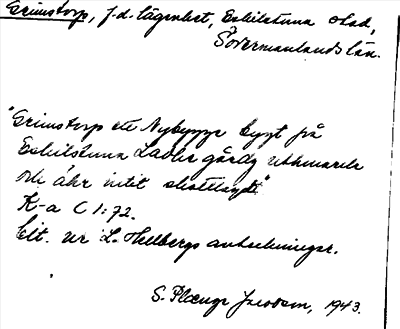 Grimstorp, f.d. lägenhet, Eskilstuna stad,
Södermanlands län.
"Grimstorp ett Nybygge bygt på
Eskilstuna Ladu gårdz uthmark
och ähr intet skattlagt"
K-a C 1:72.
Cit. ur L. Hellbergs anteckningar.
S. Plænge Jacobson, 1943.